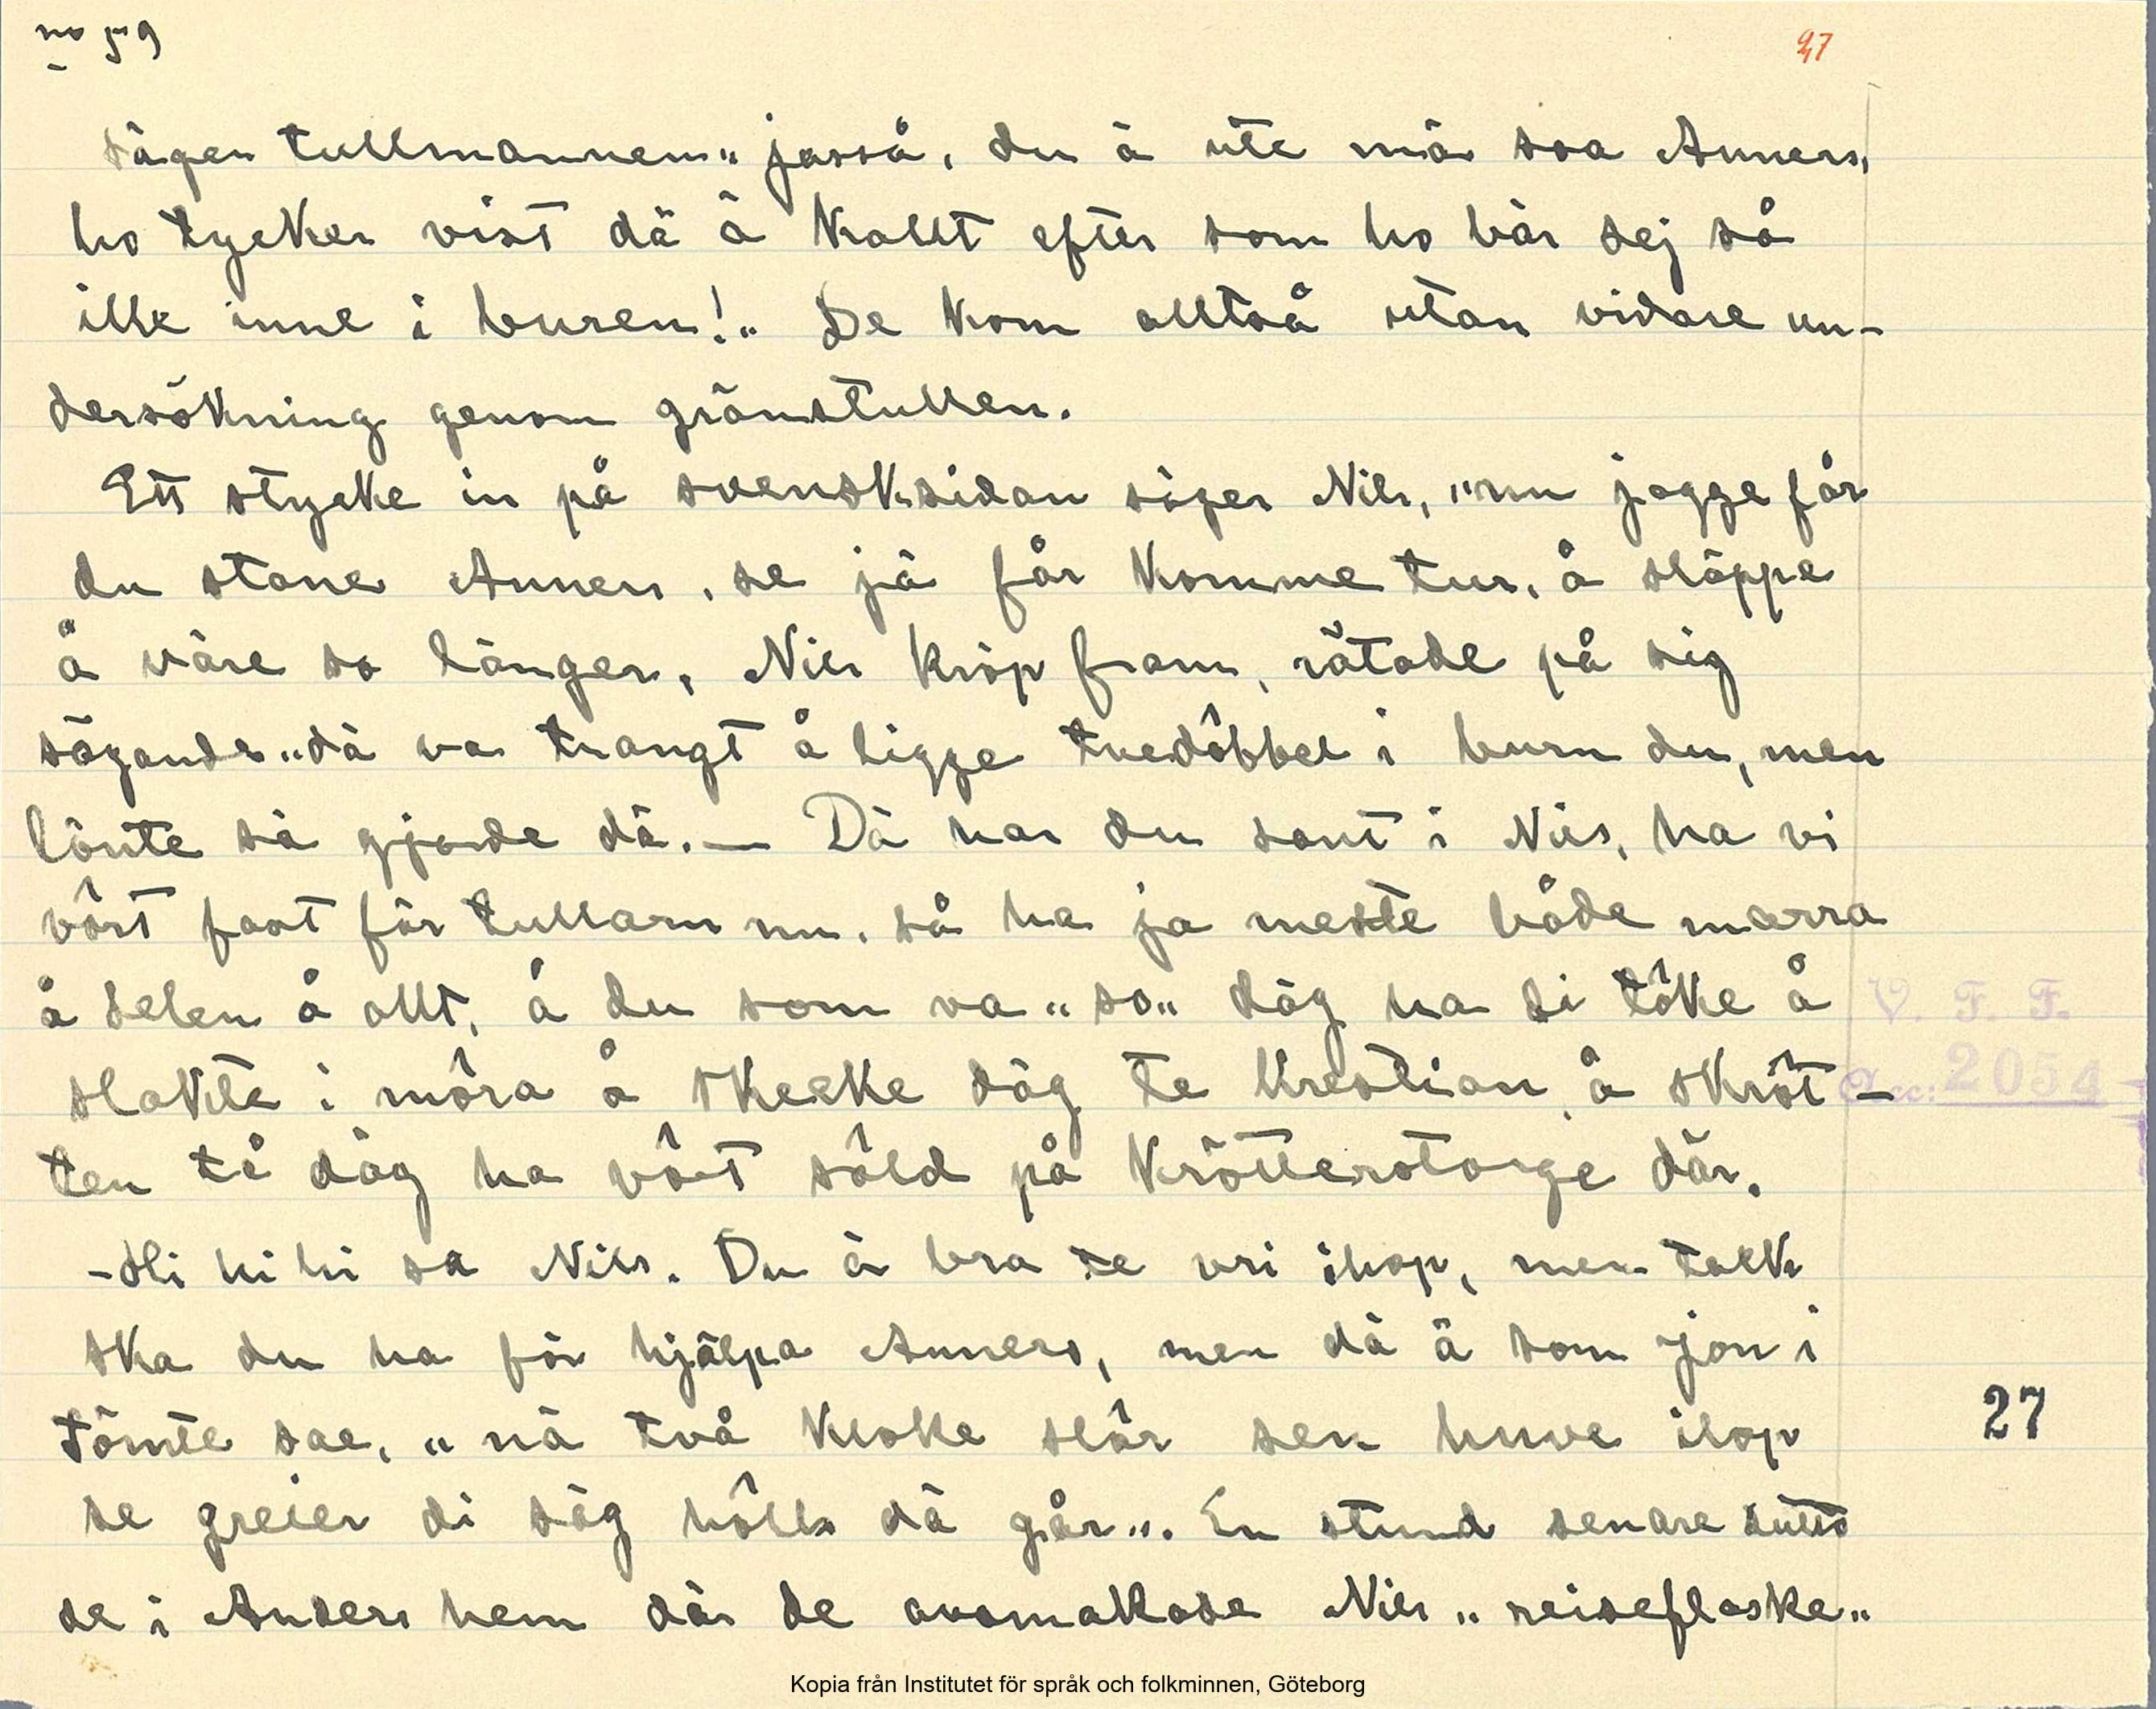 no 59
47
säger tullmannen„ jasså, du ä ute mä soa Anners,
ho tycker vist dä ä kallt efter som ho bär sej så
illa inne i buren!„ De kom alltså utan vidare un-
dersökning genom gränstullen.
Ett stycke in på svensksidan säger Nils, „nu jagge får
du stane Anners, se jä får komme tur, å släppe
å väre so länger, Nils kröp fram, rätade på sig
sägande „dä va trangt å ligge tvedôbbel i burn du, men
lönte sä gjorde dä. — Dä har du sant i Nils, ha vi
vôrt fast för tullarn nu, så ha ja meste både marra
å selen å allt, å du som va „so„ däg ha di tôke å
slakte i môra å skecke däg te Krestian, å skrôt-
ten tå däg ha vôrt sôld på Krötterstorge där.
- Hi hi hi sa Nils. Du ä bra te vri ihop, men takk
ska du ha för hjälpa Anners, men dä ä som Jon i
Tömte sae, „nä två kloke slår sen huve ihop
se greier di säg hôlls dä går„. En stund senare sutto
de i Anders hem där de avsmakade Nils „reiseflaske„
V. F. F.
Acc: 2054
27
Kopia från Institutet för språk och folkminnen, Göteborg